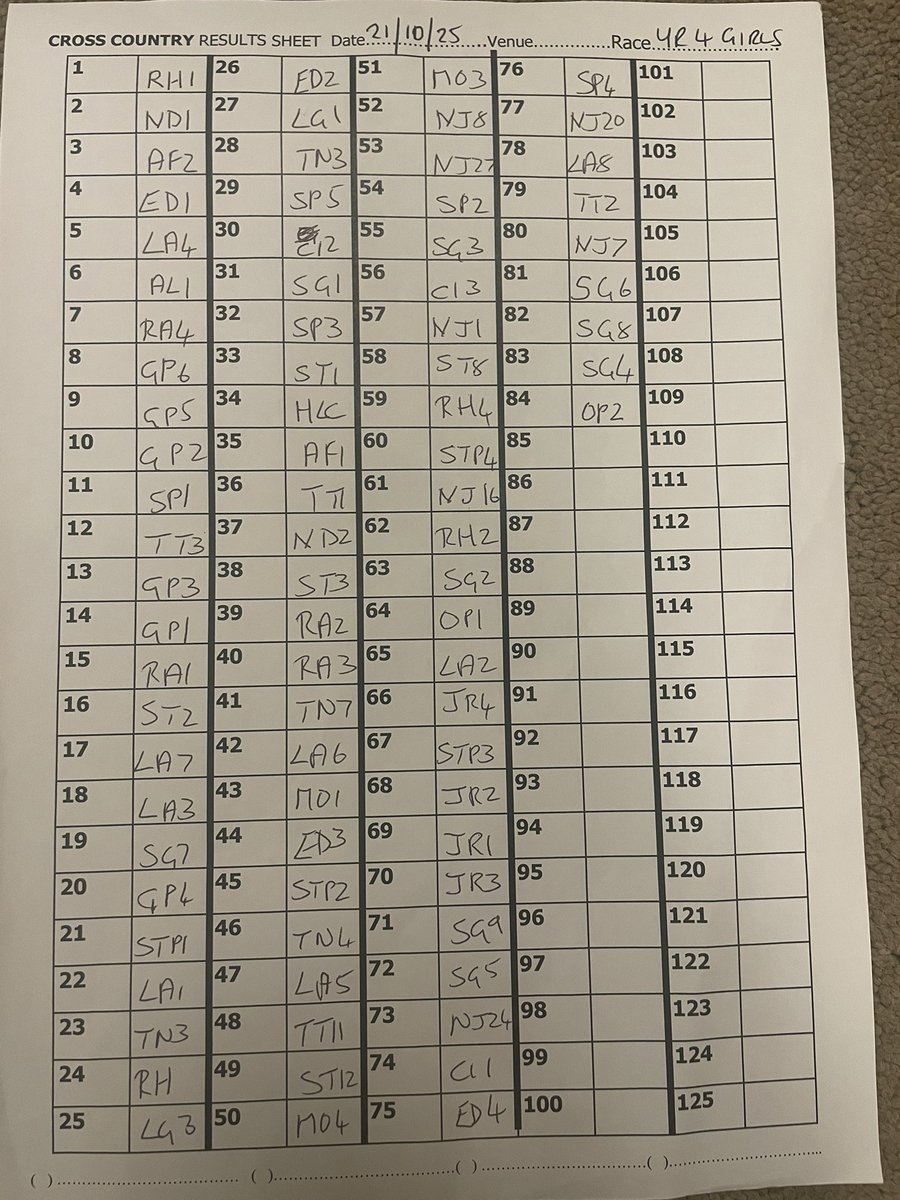 CROSS COUNTRY RESULTS SHEET Date 21/10/25 Venue Race YR 4 GIRLS
1 RH1 26 ED2 51 MO3 76 SP4 101
2 ND1 27 LG1 52 NJ8 77 NJ20 102
3 AF2 28 TN3 53 NJ27 78 LA8 103
4 ED1 29 SP5 54 SP2 79 TT2 104
5 LA4 30 C12 55 SG3 80 NJ7 105
6 AL1 31 SG1 56 C13 81 SG6 106
7 RA4 32 SP3 57 NJ1 82 SG8 107
8 GP6 33 ST1 58 ST8 83 SG4 108
9 GP5 34 HLC 59 RH4 84 OP2 109
10 GP2 35 AF1 60 STP4 85 110
11 SP1 36 TT1 61 NJ16 86 111
12 TT3 37 ND2 62 RH2 87 112
13 GP3 38 ST3 63 SG2 88 113
14 GP1 39 RA2 64 OP1 89 114
15 RA1 40 RA3 65 LA2 90 115
16 ST2 41 TN7 66 JR4 91 116
17 LA7 42 LA6 67 STP3 92 117
18 LA3 43 MO1 68 JR2 93 118
19 SG7 44 ED3 69 JR1 94 119
20 GP4 45 STP2 70 JR3 95 120
21 STP1 46 TN4 71 SG9 96 121
22 LA1 47 LA5 72 SG5 97 122
23 TN3 48 TT11 73 NJ24 98 123
24 RH 49 ST12 74 C11 99 124
25 LG3 50 MO4 75 ED4 100 125
( ) ( ) ( ) ( )